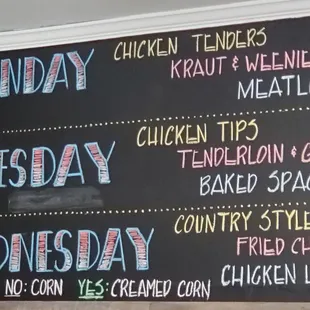 NDAY CHICKEN TENDERS
KRAUT & WEENIE
MEATL
ESDAY CHICKEN TIPS
TENDERLOIN & G
BAKED SPAG
DNESDAY COUNTRY STYLE
FRIED CH
CHICKEN L
NO: CORN YES: CREAMED CORN